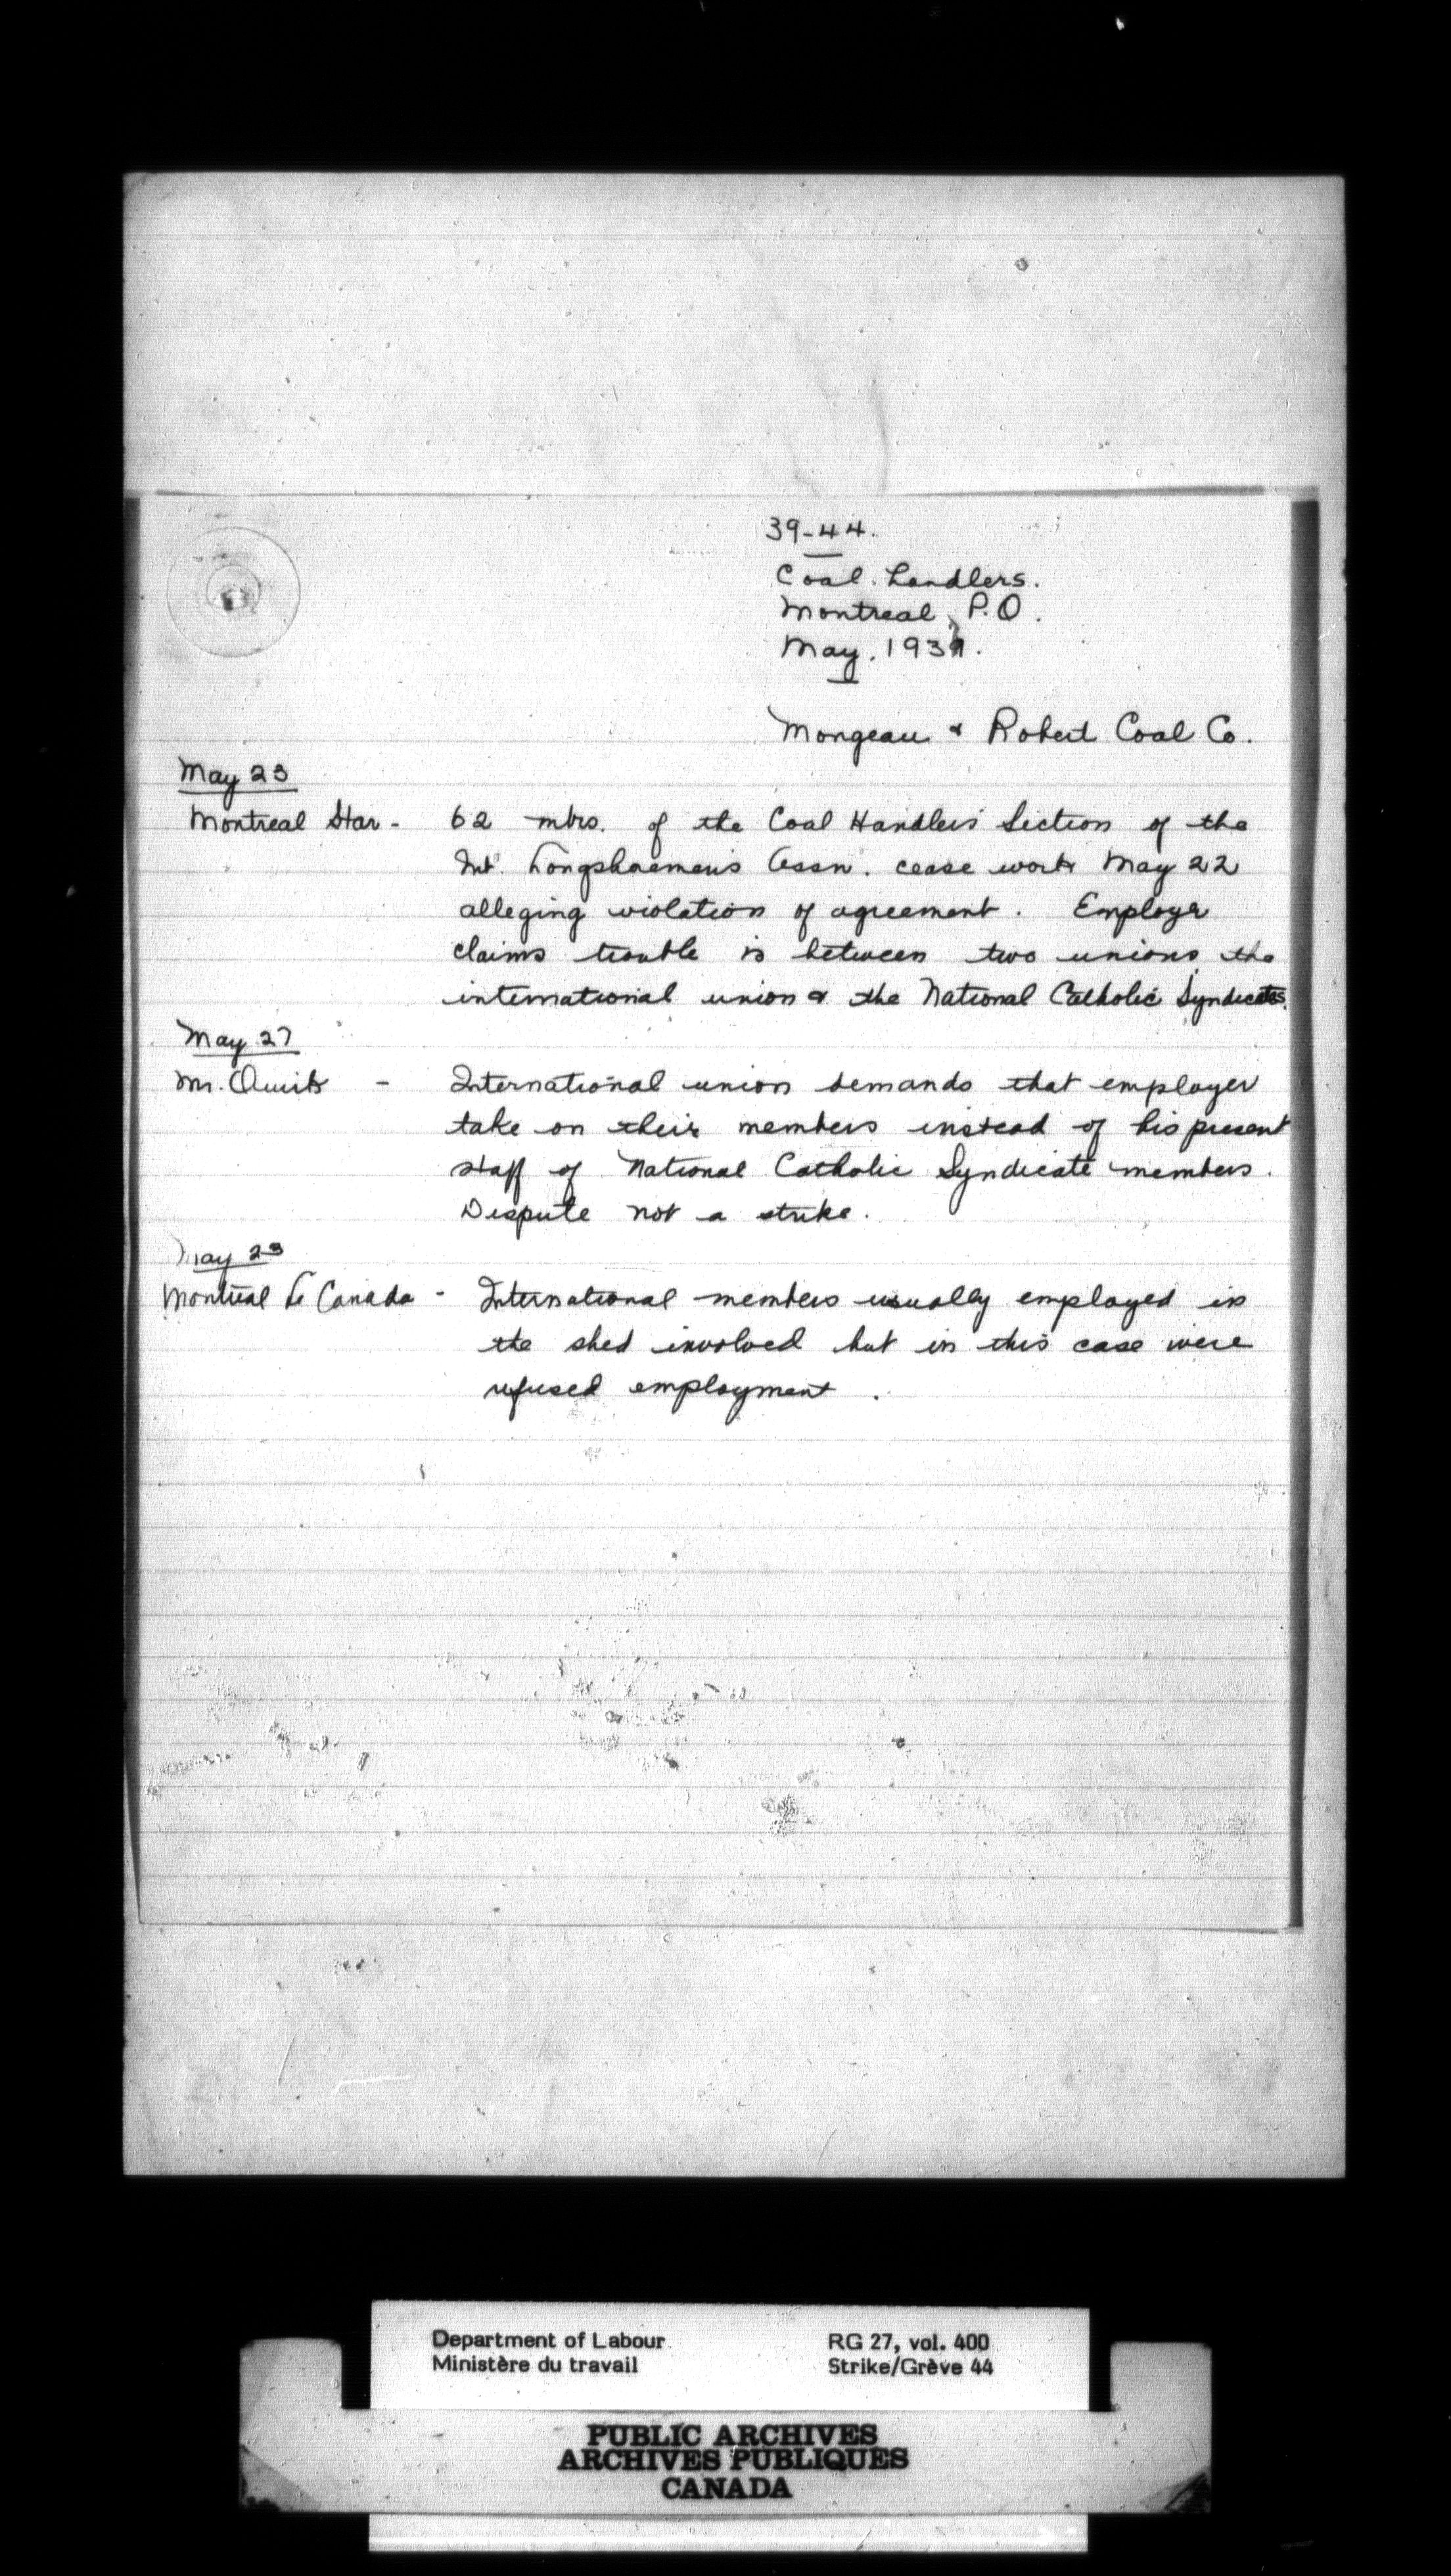 39-44.
Coal. Handlers.
Montreal, P.Q.
May. 1939.
Mongeau & Robert Coal Co.
May 23
Montreal Star - 62 mbrs. of the Coal Handlers Section of the
Int. Longshoremen's Assn. cease work May 22
alleging violation of agreement. Employer
claims trouble is between two unions, the
international union & the National Catholic Syndicates.
May 27
Mr. - International union demands that employer
take on their members instead of his present
staff of National Catholic Syndicate members.
Dispute not a strike.
May 23
Montreal Le Canada - International members usually employed in
the shed involved but in this case were
refused employment.
Department of Labour
Ministère du travail
RG 27, vol. 400
Strike/Grève 44
PUBLIC ARCHIVES
ARCHIVES PUBLIQUES
CANADA